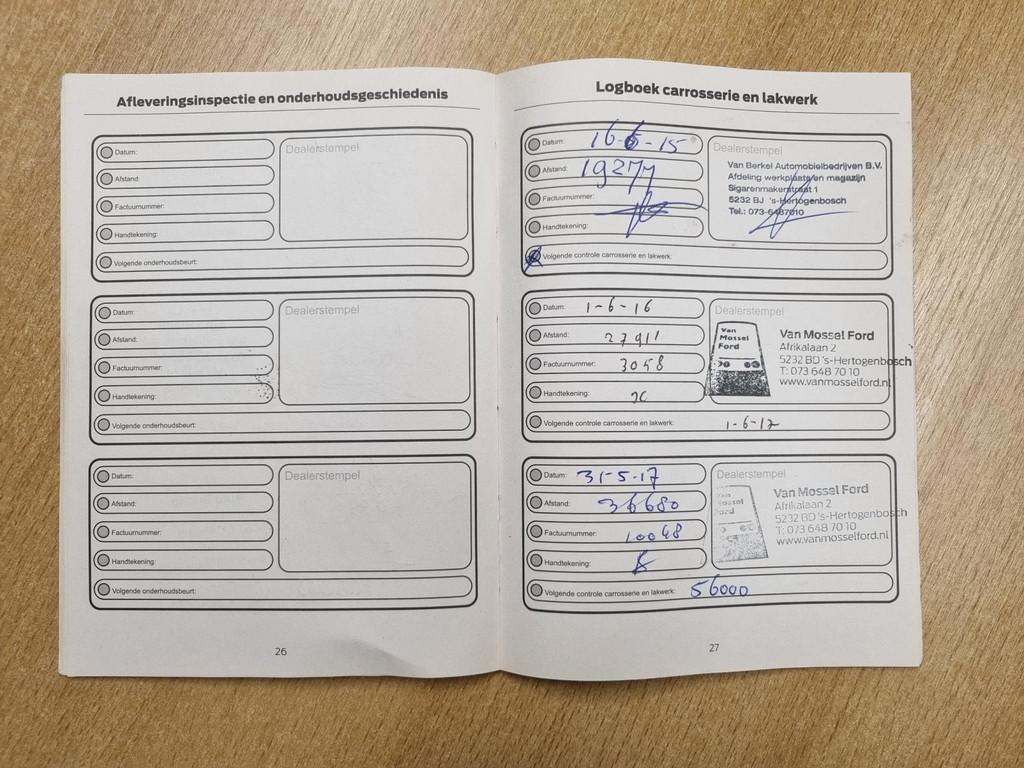 Afleveringsinspectie en onderhoudsgeschiedenis
Datum:
Dealerstempel
Afstand:
Factuurnummer:
Handtekening:
Volgende onderhoudsbeurt:
Datum:
Dealerstempel
Afstand:
Factuurnummer:
Handtekening:
Volgende onderhoudsbeurt:
Datum:
Dealerstempel
Afstand:
Factuurnummer:
Handtekening:
Volgende onderhoudsbeurt:
26
Logboek carrosserie en lakwerk
Datum: 16-6-15
Afstand: 19277
Factuurnummer:
Handtekening:
Dealerstempel
Van Berkel Automobielbedrijven B.V.
Afdeling werkplaats en magazijn
Sigarenmakerstraat 1
5232 BJ 's-Hertogenbosch
Tel.: 073-6487010
Volgende controle carrosserie en lakwerk:
Datum: 1-6-16
Afstand: 27911
Factuurnummer: 3058
Handtekening:
Dealerstempel
Van
Mossel
Ford
Van Mossel Ford
Afrikalaan 2
5232 BD 's-Hertogenbosch
T: 073 648 70 10
www.vanmosselford.nl
Volgende controle carrosserie en lakwerk: 1-6-17
Datum: 31-5-17
Afstand: 36680
Factuurnummer: 10048
Handtekening:
Dealerstempel
Van
Mossel
Ford
Van Mossel Ford
Afrikalaan 2
5232 BD 's-Hertogenbosch
T: 073 648 70 10
www.vanmosselford.nl
Volgende controle carrosserie en lakwerk: 56000
27